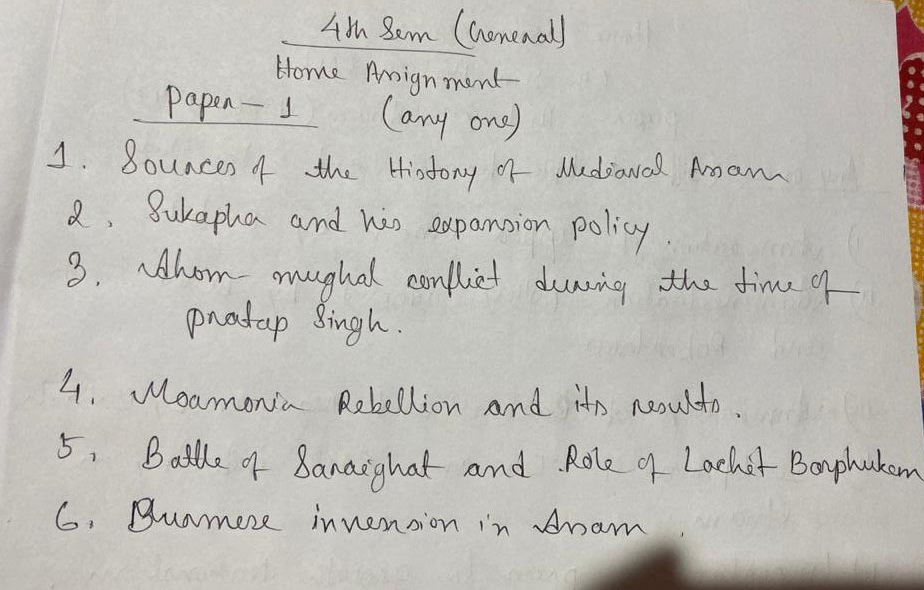 4th Sem (General)
Home Assignment
Paper - 1 (any one)
1. Sources of the History of Mediaval Assam
2. Sukapha and his expansion policy.
3. Ahom mughal conflict during the time of
pratap Singh.
4. Moamoria Rebellion and its results.
5. Battle of Saraighat and Role of Lachit Borphukan
6. Buramese invension in Assam.